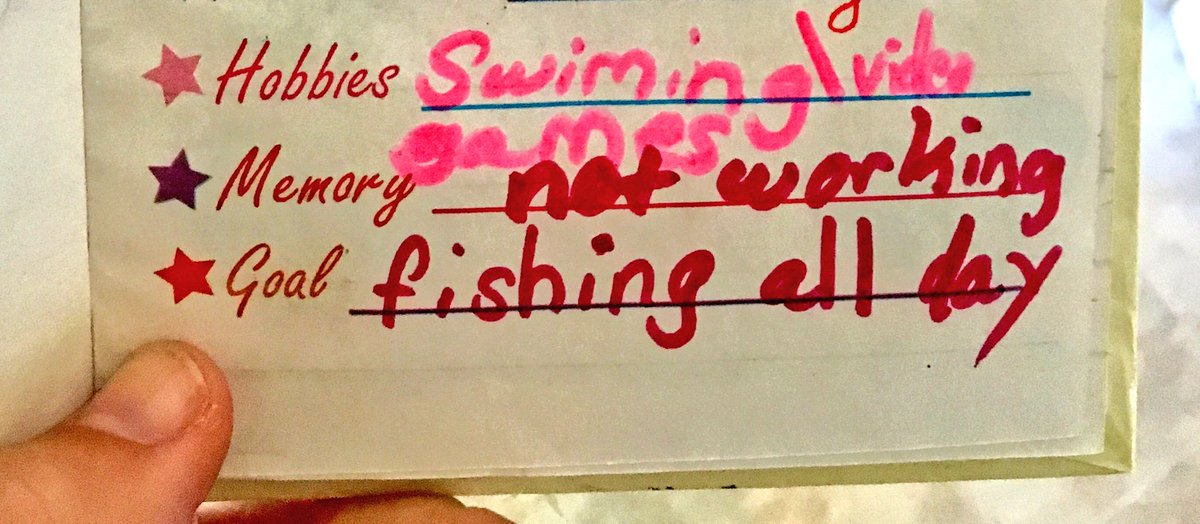 Hobbies Swiming/video
games
Memory not working
Goal fishing all day